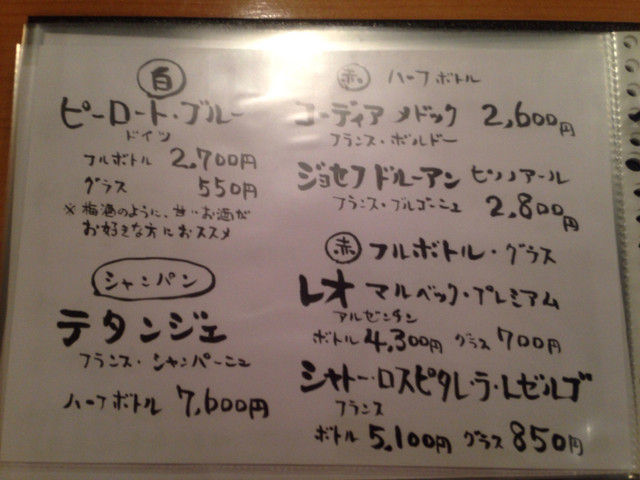 白
ピーロート・ブルー
ドイツ
フルボトル 2,700円
グラス 550円
※梅酒のように、甘いお酒が
お好きな方におススメ
シャンパン
テタンジェ
フランス・シャンパーニュ
ハーフボトル 7,600円
赤 ハーフボトル
コーディア メドック 2,600円
フランス・ボルドー
ジョセフ ドルーアン ピノノアール
フランス・ブルゴーニュ 2,800円
赤 フルボトル・グラス
レオ マルベック・プレミアム
アルゼンチン
ボトル 4,300円 グラス 700円
シャトー・ロスピタレ・ラ・レゼルブ
フランス
ボトル 5,100円 グラス 850円